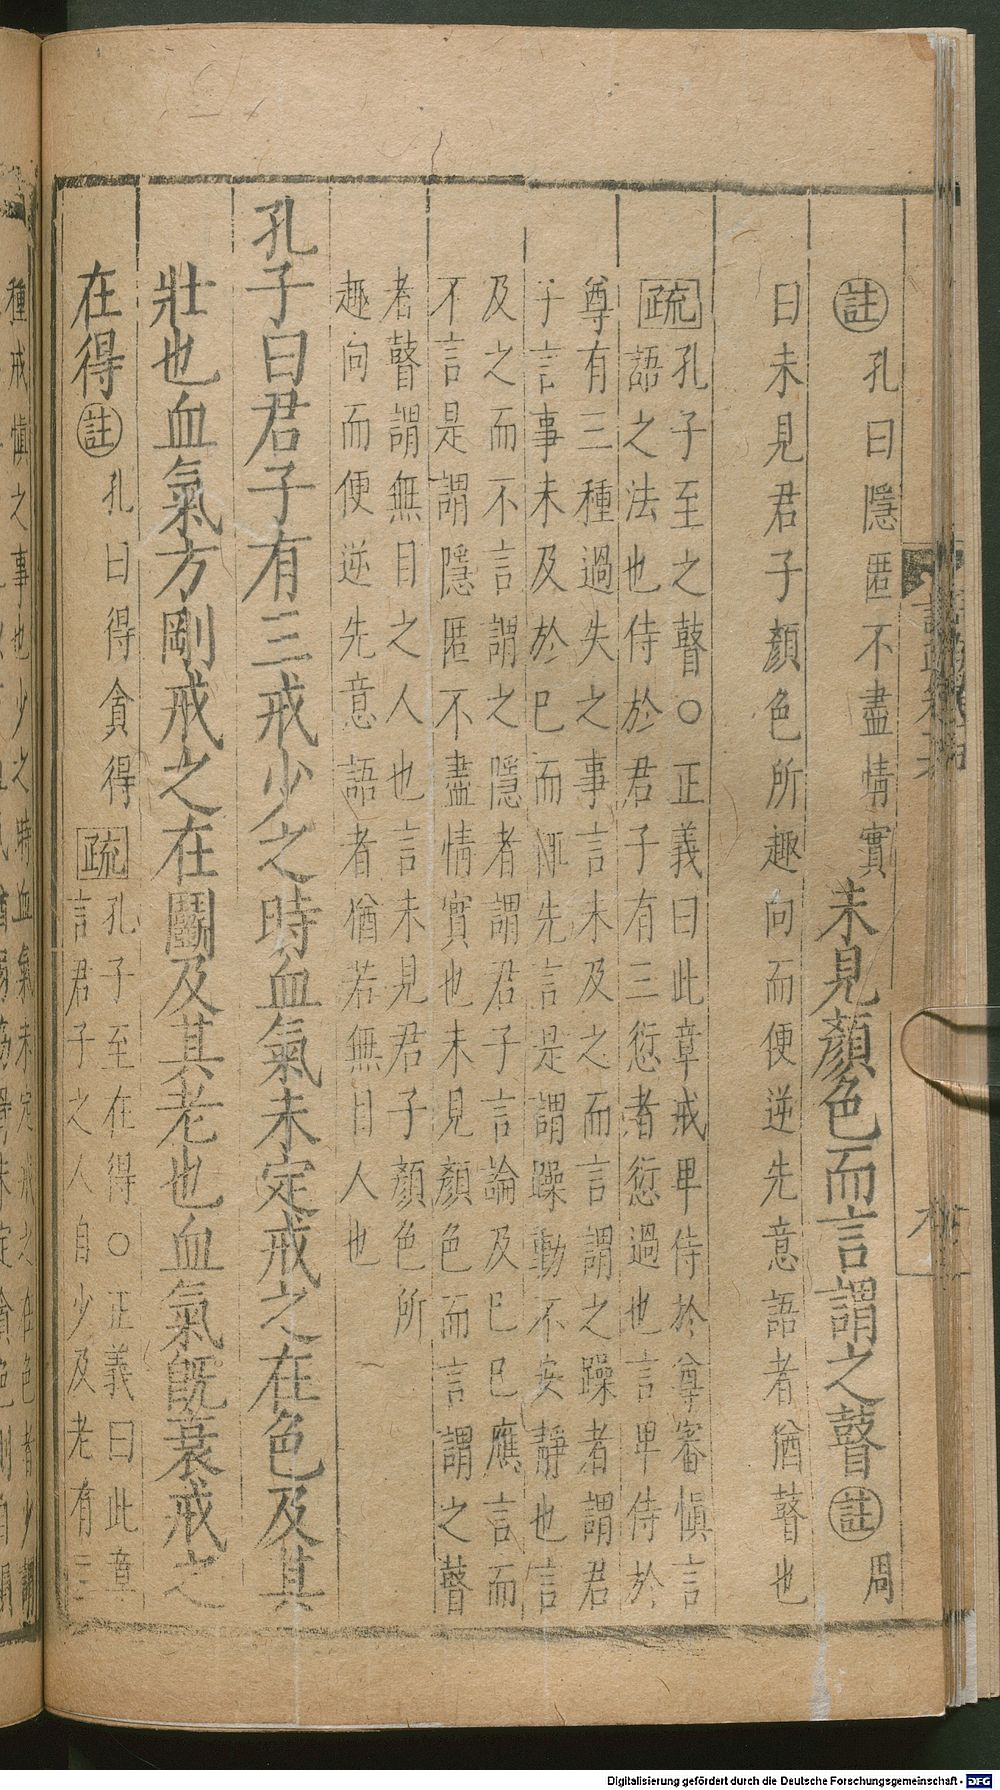 ㊟孔曰隱匿不盡情實未見顏色而言謂之瞽㊟周
曰未見君子顏色所趣向而便逆先意語者猶瞽也
疏孔子至之瞽○正義曰此章戒卑侍於尊審慎言
語之法也侍於君子有三愆者愆過也言卑侍於
尊有三種過失之事言未及之而言謂之躁者謂君
子言事未及於己而輒先言是謂躁動不安靜也言
及之而不言謂之隱者謂君子言論及己己應言而
不言是謂隱匿不盡情實也未見顏色而言謂之瞽
者瞽謂無目之人也言未見君子顏色所
趣向而便逆先意語者猶若無目人也
孔子曰君子有三戒少之時血氣未定戒之在色及其
壯也血氣方剛戒之在鬬及其老也血氣旣衰戒之
在得㊟孔曰得貪得疏孔子至在得○正義曰此章
言君子之人自少及老有三
種戒慎之事也少之時血氣未定戒之在色者少謂
Digitalisierung gefördert durch die Deutsche Forschungsgemeinschaft - DFG